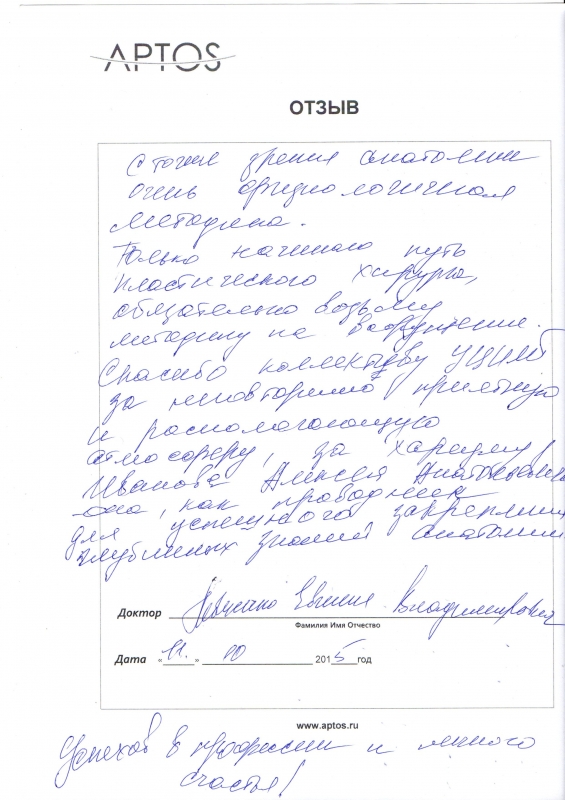 APTOS
ОТЗЫВ
С точки зрения анатомии
очень физиологичная
методика.
Только начинаю путь
пластического хирурга,
обязательно возьму
методику на вооружение.
Спасибо коллективу
за неповторимо приятную
и распологающую
атмосферу, за харизму
Иванова Алексея Анатольевича
она, как проводник
для успешного закрепления
глубинных знаний анатомии
Доктор Евгения Владимировна
Фамилия Имя Отчество
Дата «11.» 10 2015 год
www.aptos.ru
Успехов в профессии и много
счастья!